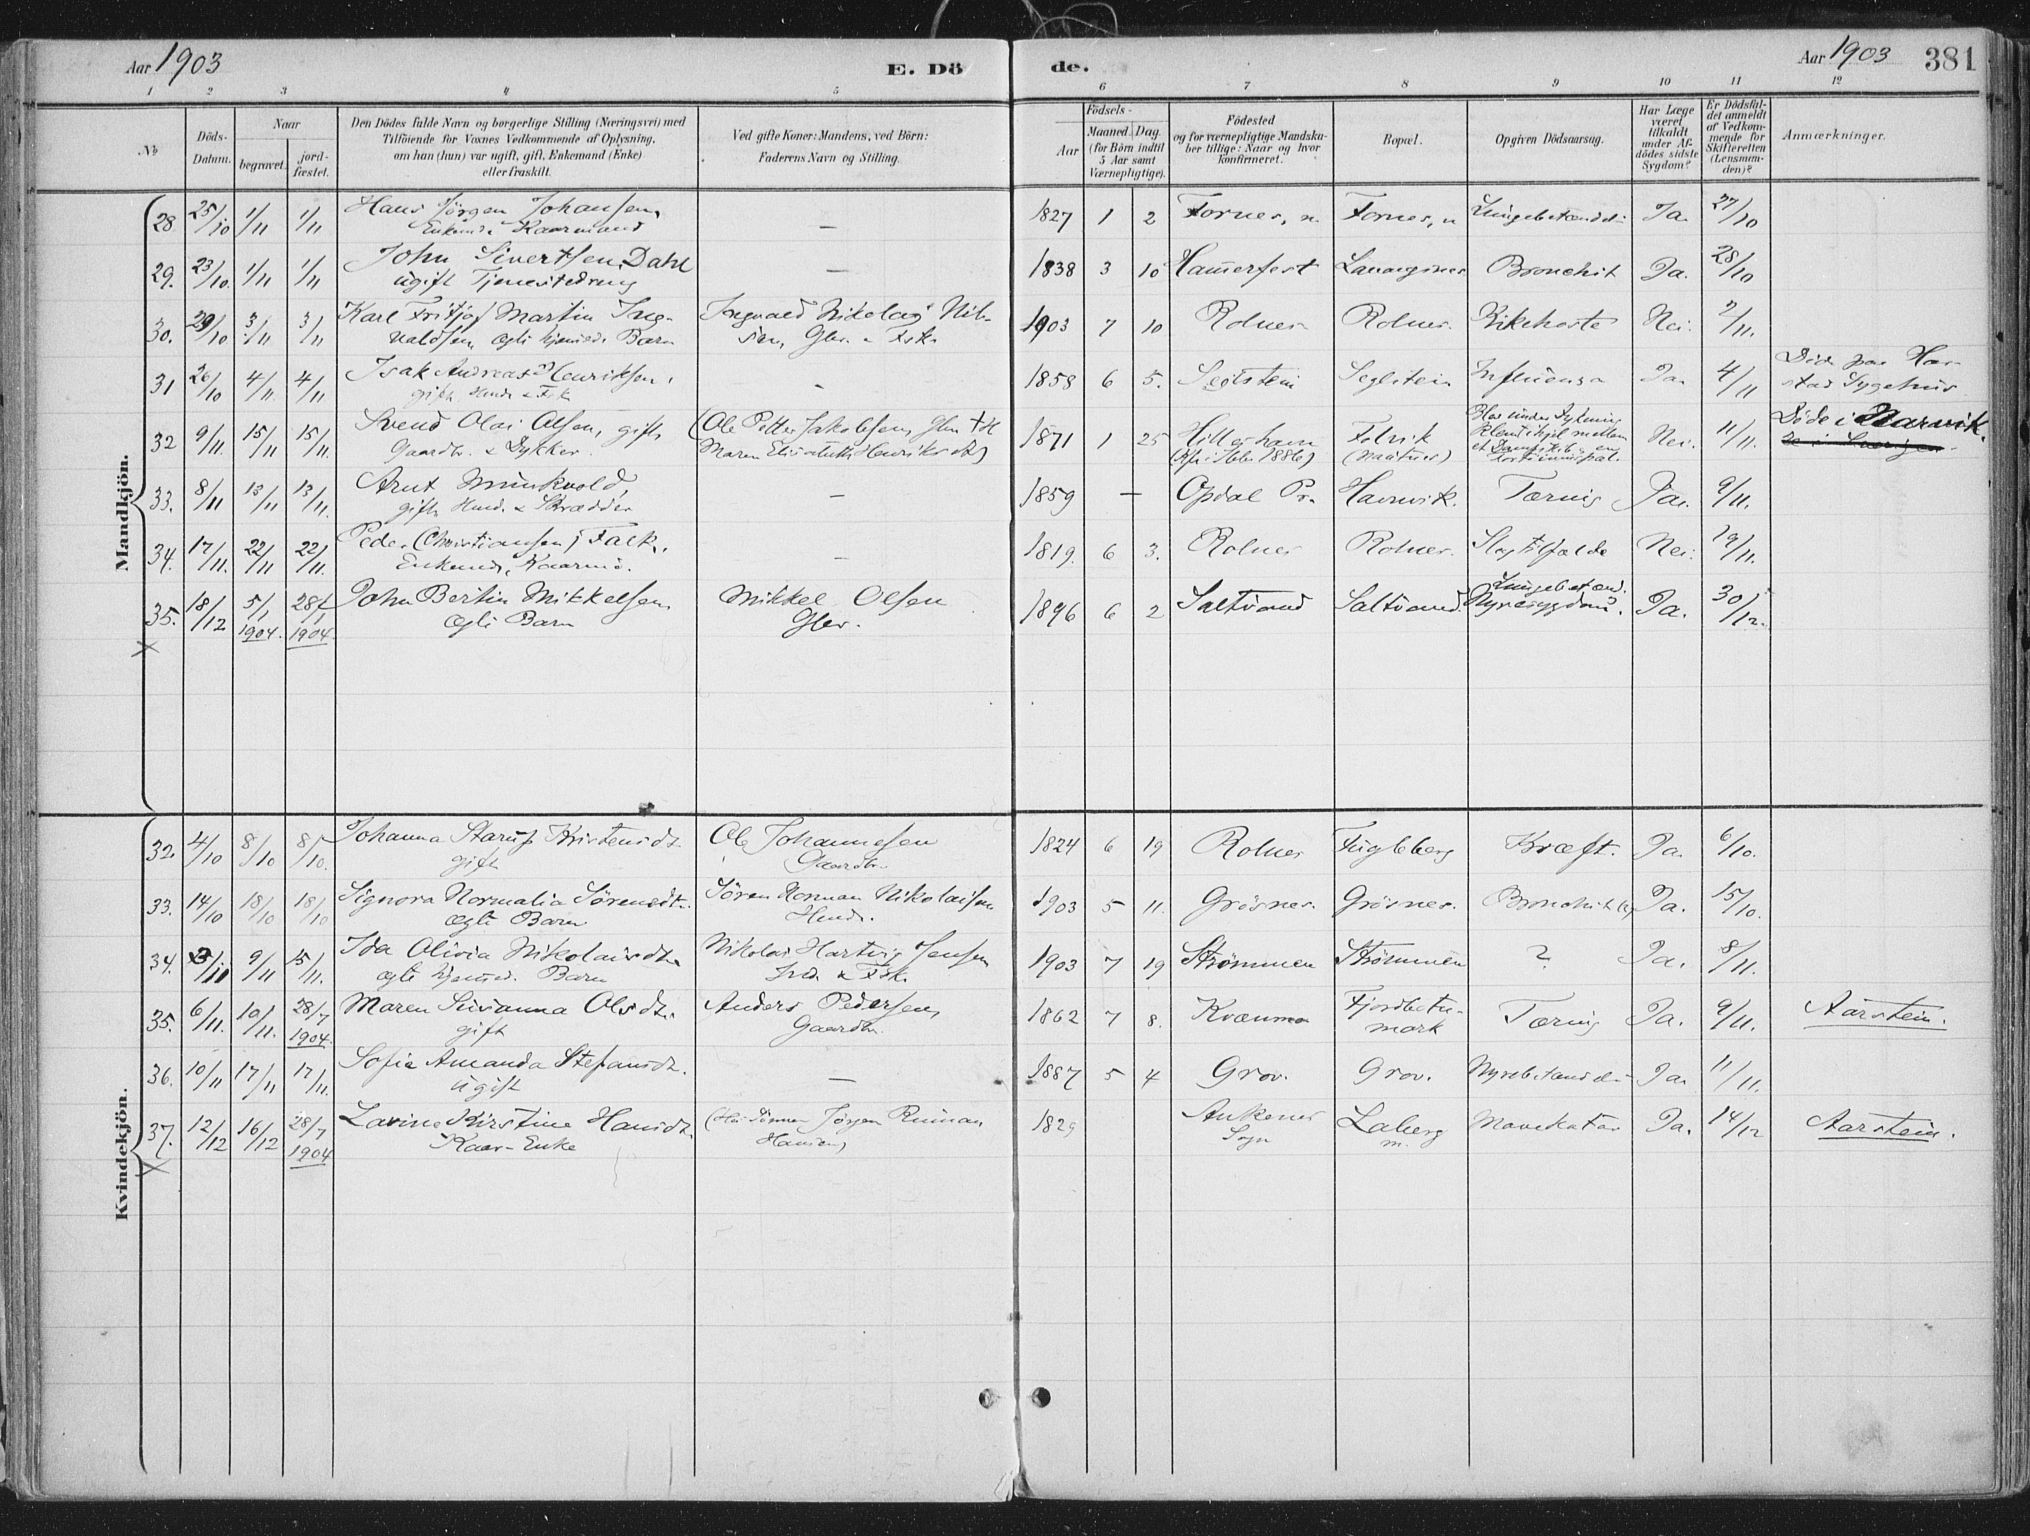 Aar 1903
E. Dö
de.
Aar 1903
381
1 2 3 4 5 6 7 8 9 10 11 12
№
Döds-
Datum.
Naar
begravet.
jord-
fæstet.
Den Dödes fulde Navn og borgerlige Stilling (Næringsvei) med
Tilföiende for Voxnes Vedkommende af Oplysning,
om han (hun) var ugift, gift, Enkemand (Enke)
eller fraskilt.
Ved gifte Koner: Mandens, ved Börn:
Faderens Navn og Stilling.
Födsels-
Aar
Maaned. Dag.
(for Börn indtil
5 Aar samt
Værnepligtige).
Födested
og for værnepligtige Mandska-
ber tillige: Naar og hvor
konfirmeret.
Bopæl.
Opgiven Dödsaarsag.
Har Læge
været
tilkaldt
under Af-
dödes sidste
Sygdom?
Er Dödsfal-
det anmeldt
af Vedkom-
mende for
Skifteretten
(Lensman-
den)?
Anmærkninger.
Mandkjön.
28 25/10 1/11 1/11 Hans Jörgen Johansen, — 1827 1 2 Fornes, n. Fornes, n Ja 27/10
Kaarmand
29. 23/10. 1/11 1/11 John Sivertsen Dahl — 1838 3 10 Lavangsnes Bronchit Ja. 28/10
ugift
30. 29/10 3/11 3/11 Karl Fritjof Martin Ing- Ingvald Nikolai Nil- 1903 7 10 Rolnes Rolnes. Kikhoste Nei. 2/11.
valdsen, ægte hjemmed. Barn sen, Gbr. & Fisk.
31 26/10 4/11 4/11 Isak Andreas Henriksen, - 1858 6 5. Seglstein Seglstein Influensa Ja 4/11 Död paa Har-
gift, Husm. & Fisk stad Sygehus
32 9/11. 15/11. 15/11. Svend Olai Olsen, gift (Ole Petter Jakobsen, 1871 1 25 Hillershavn Folvik Nei. 11/11. Döde i Narvik.
Gaardbr. & Dykker. Maren Elisabeth Henriksdt) 1886)
33. 8/11 13/11 13/11. Arnt Munkvold, — 1859 — Opdal Pr. Havnvik. Tæring Ja. 9/11.
gift, Husm. & Skrædder
34. 17/11. 22/11 22/11. Peder Christiansen Falk, — 1819. 6 3. Rolnes Rolnes. Slagtilfælde Nei. 19/11.
Enkemd, Kaarmd.
35. 18/12 5/1 1904. 28/1 1904. John Bertin Mikkelsen, Mikkel Olsen 1896 6 2 Saltvand Saltvand. Lungebetænd. Ja. 30/12.
ægte Barn Gbr. Nyresygdom.
Kvindekjön.
32. 4/10 8/10 8/10. Johanna Starup Kristensdt. Ole Johannesen 1824 6 19 Rolnes Fugleberg Kræft. Ja. 6/10.
gift Gaardbr.
33. 14/10 18/10 18/10 Signora Normalia Sörensdt. Sören Norman Nikolaisen 1903 5 11. Grösnes. Grösnes. Ja. 15/10.
ægte Barn Husm.
34. 9/11 15/11. Ida Olivia Nikolaisdt. Nikolai Hartvig Jensen 1903 7 19 Strömmen Strömmen ? Ja. 8/11.
ægte hjemmed. Barn Ind. & Fisk.
35. 6/11. 10/11. 28/7 1904. Maren Susanna Olsdt. Anders Pedersen, 1862 7 8. Kvænmo Fjordbotn- Tæring Ja. 9/11. Aarstein.
gift Gaardbr. mark
36. 10/11 17/11 17/11. Sofie Amanda Stefansdt. — 1887 5 4 Grov. Grov. Ja. 11/11.
ugift
37. 12/12 16/12 28/7 1904 Lavine Kirstine Hansdt. Jörgen 1829 Ankenes Laberg Mavekatar Ja. 14/12 Aarstein.
Kaar-Enke Hansen) Sogn